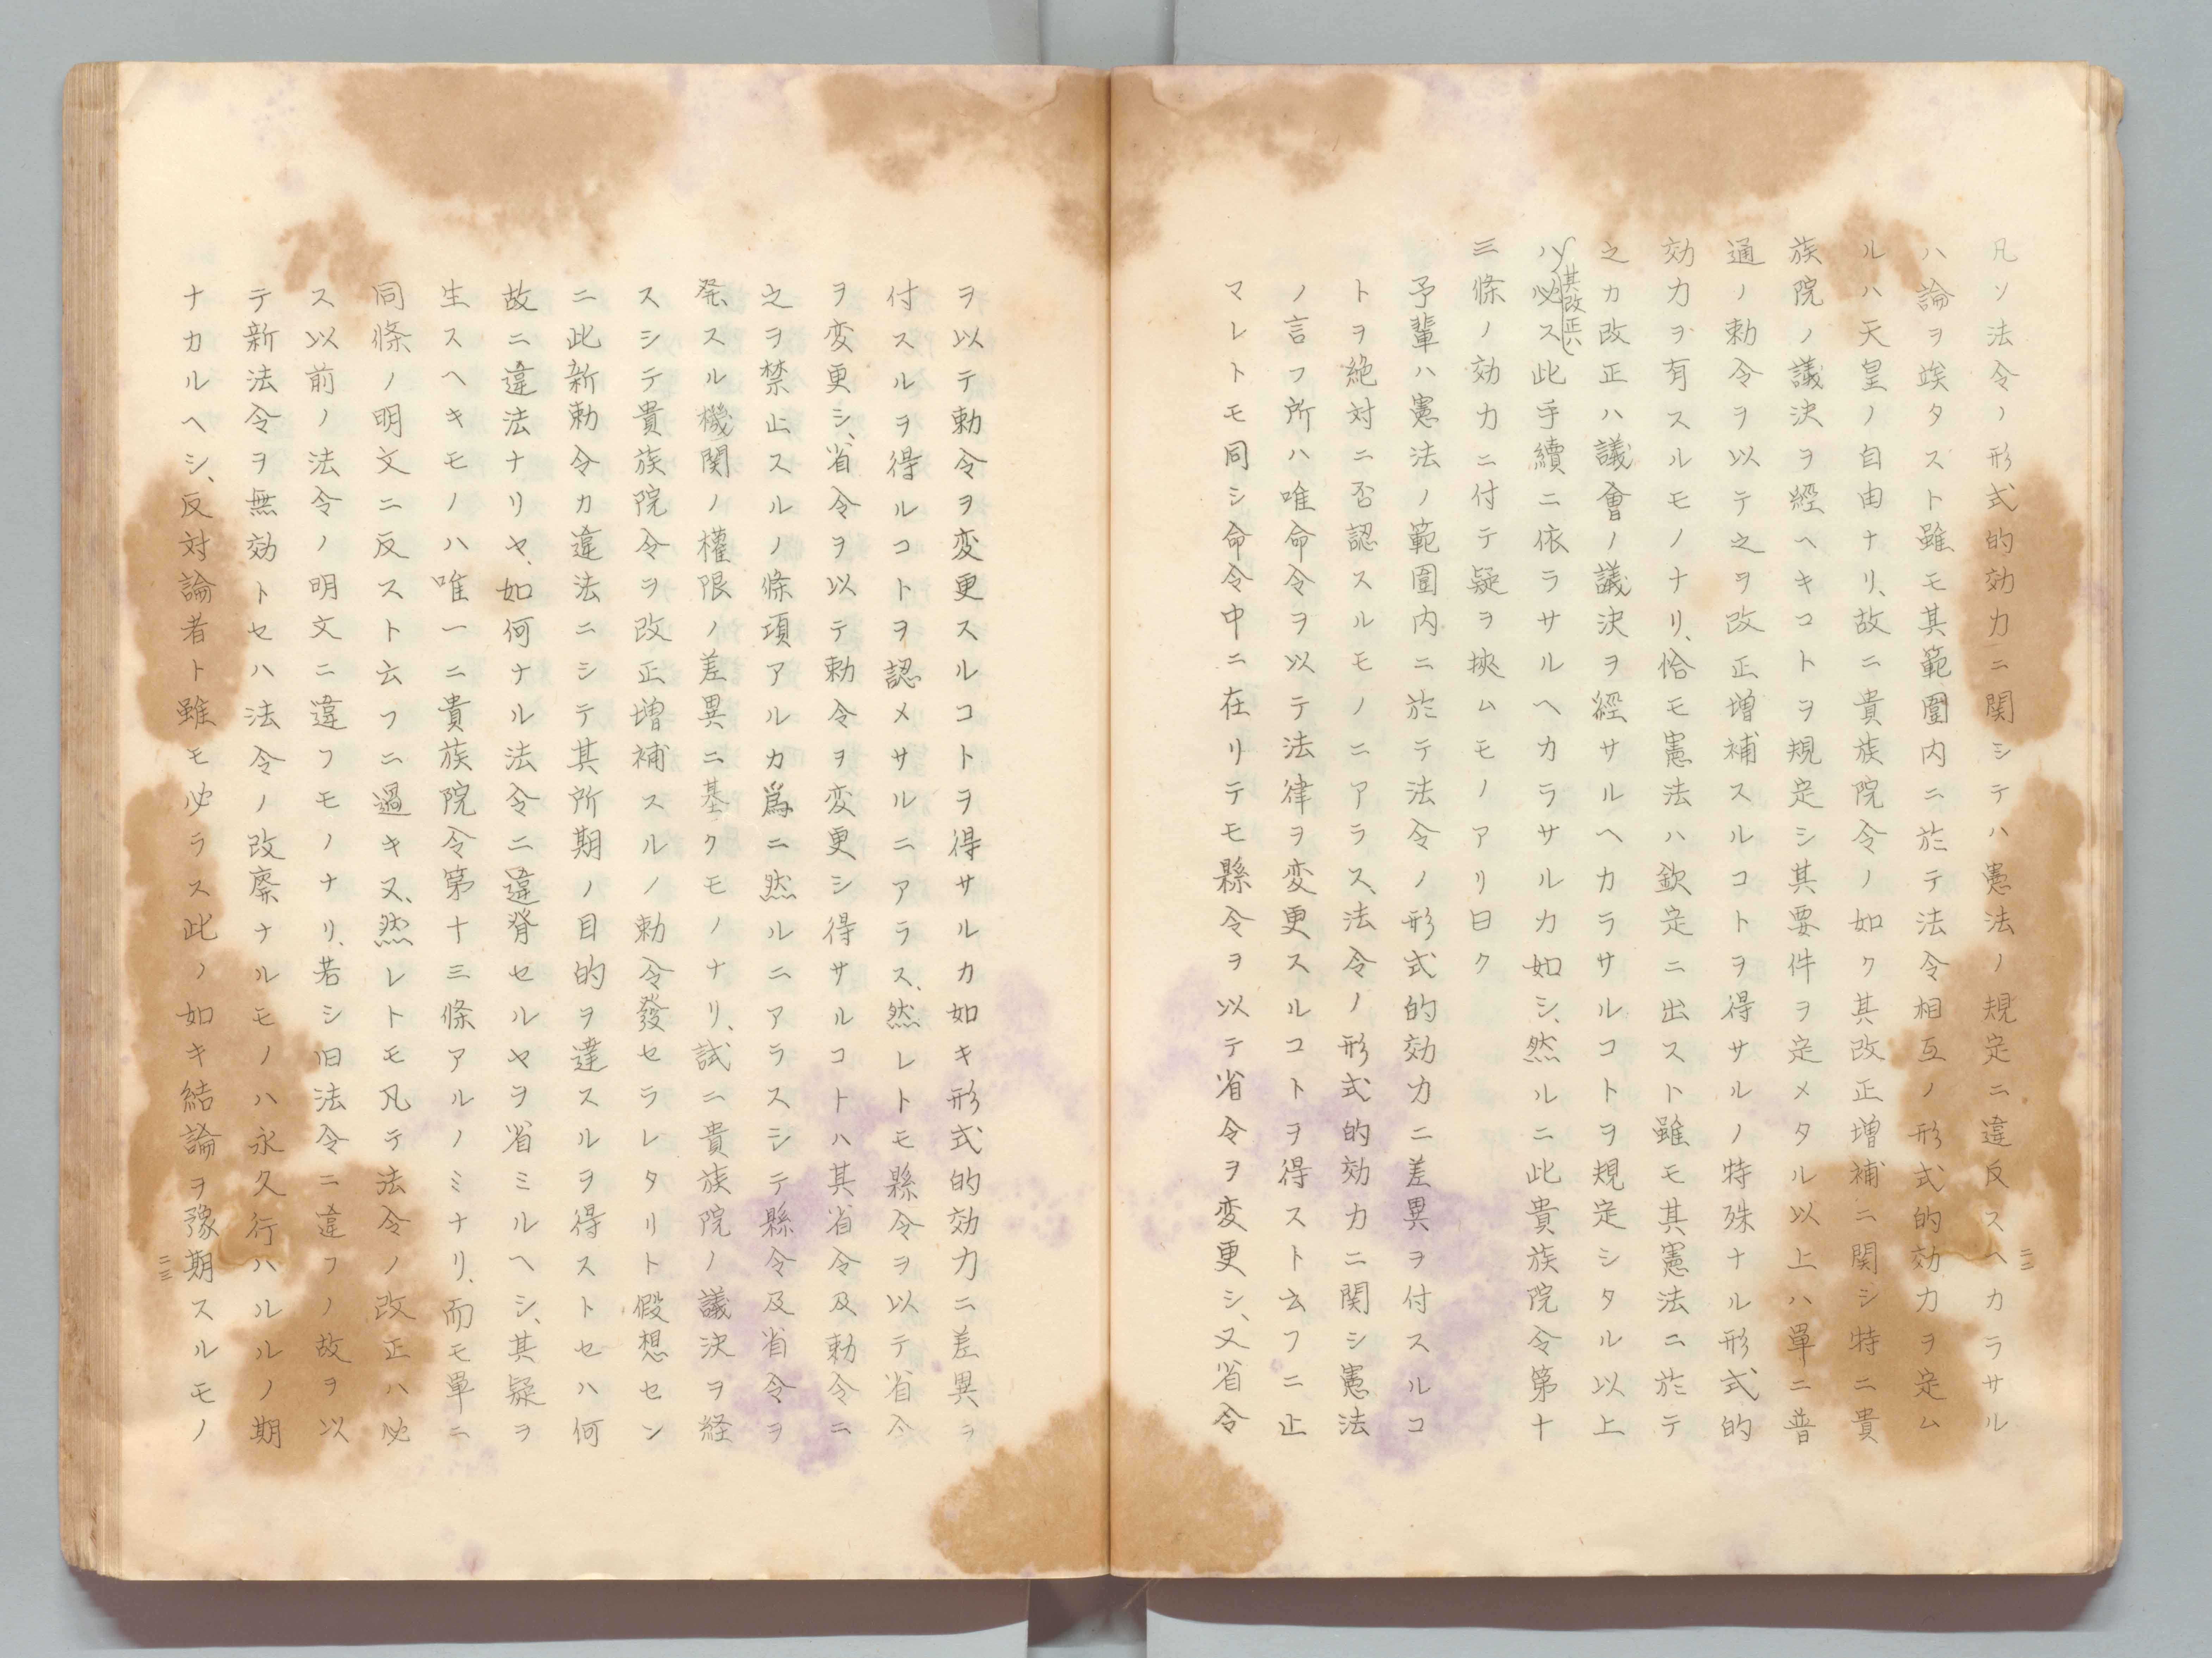 凡ソ法令ノ形式的効力ニ関シテハ憲法ノ規定ニ違反スヘカラサル
ハ論ヲ竢タスト雖モ其範圍内ニ於テ法令相互ノ形式的効力ヲ定ム
ルハ天皇ノ自由ナリ、故ニ貴族院令ノ如ク其改正増補ニ関シ特ニ貴
族院ノ議決ヲ經ヘキコトヲ規定シ其要件ヲ定メタル以上ハ單ニ普
通ノ勅令ヲ以テ之ヲ改正増補スルコトヲ得サルノ特殊ナル形式的
効力ヲ有スルモノナリ、恰モ憲法ハ欽定ニ出スト雖モ其憲法ニ於テ
之カ改正ハ議會ノ議決ヲ經サルヘカラサルコトヲ規定シタル以上
ハ其改正ハ必ス此手續ニ依ラサルヘカラサルカ如シ、然ルニ此貴族院令第十
三條ノ効力ニ付テ疑ヲ挾ムモノアリ曰ク
予輩ハ憲法ノ範圍内ニ於テ法令ノ形式的効力ニ差異ヲ付スルコ
トヲ絶対ニ否認スルモノニアラス、法令ノ形式的効力ニ関シ憲法
ノ言フ所ハ唯命令ヲ以テ法律ヲ変更スルコトヲ得スト云フニ止
マレトモ同シ命令中ニ在リテモ縣令ヲ以テ省令ヲ変更シ、又省令
三三
ヲ以テ勅令ヲ変更スルコトヲ得サルカ如キ形式的効力ニ差異ヲ
付スルヲ得ルコトヲ認メサルニアラス、然レトモ縣令ヲ以テ省令
ヲ変更シ、省令ヲ以テ勅令ヲ変更シ得サルコトハ其省令及勅令ニ
之ヲ禁止スルノ條項アルカ爲ニ然ルニアラスシテ縣令及省令ヲ
発スル機関ノ權限ノ差異ニ基クモノナリ、試ニ貴族院ノ議決ヲ経
スシテ貴族院令ヲ改正増補スルノ勅令發セラレタリト假想セン
ニ此新勅令カ違法ニシテ其所期ノ目的ヲ達スルヲ得ストセハ何
故ニ違法ナリヤ、如何ナル法令ニ違背セルヤヲ省ミルヘシ、其疑ヲ
生スヘキモノハ唯一ニ貴族院令第十三條アルノミナリ、而モ單ニ
同條ノ明文ニ反スト云フニ過キス、然レトモ凡テ法令ノ改正ハ必
ス以前ノ法令ノ明文ニ違フモノナリ、若シ旧法令ニ違フノ故ヲ以
テ新法令ヲ無効トセハ法令ノ改廃ナルモノハ永久行ハルルノ期
ナカルヘシ、反対論者ト雖モ必ラス此ノ如キ結論ヲ豫期スルモノ
三三